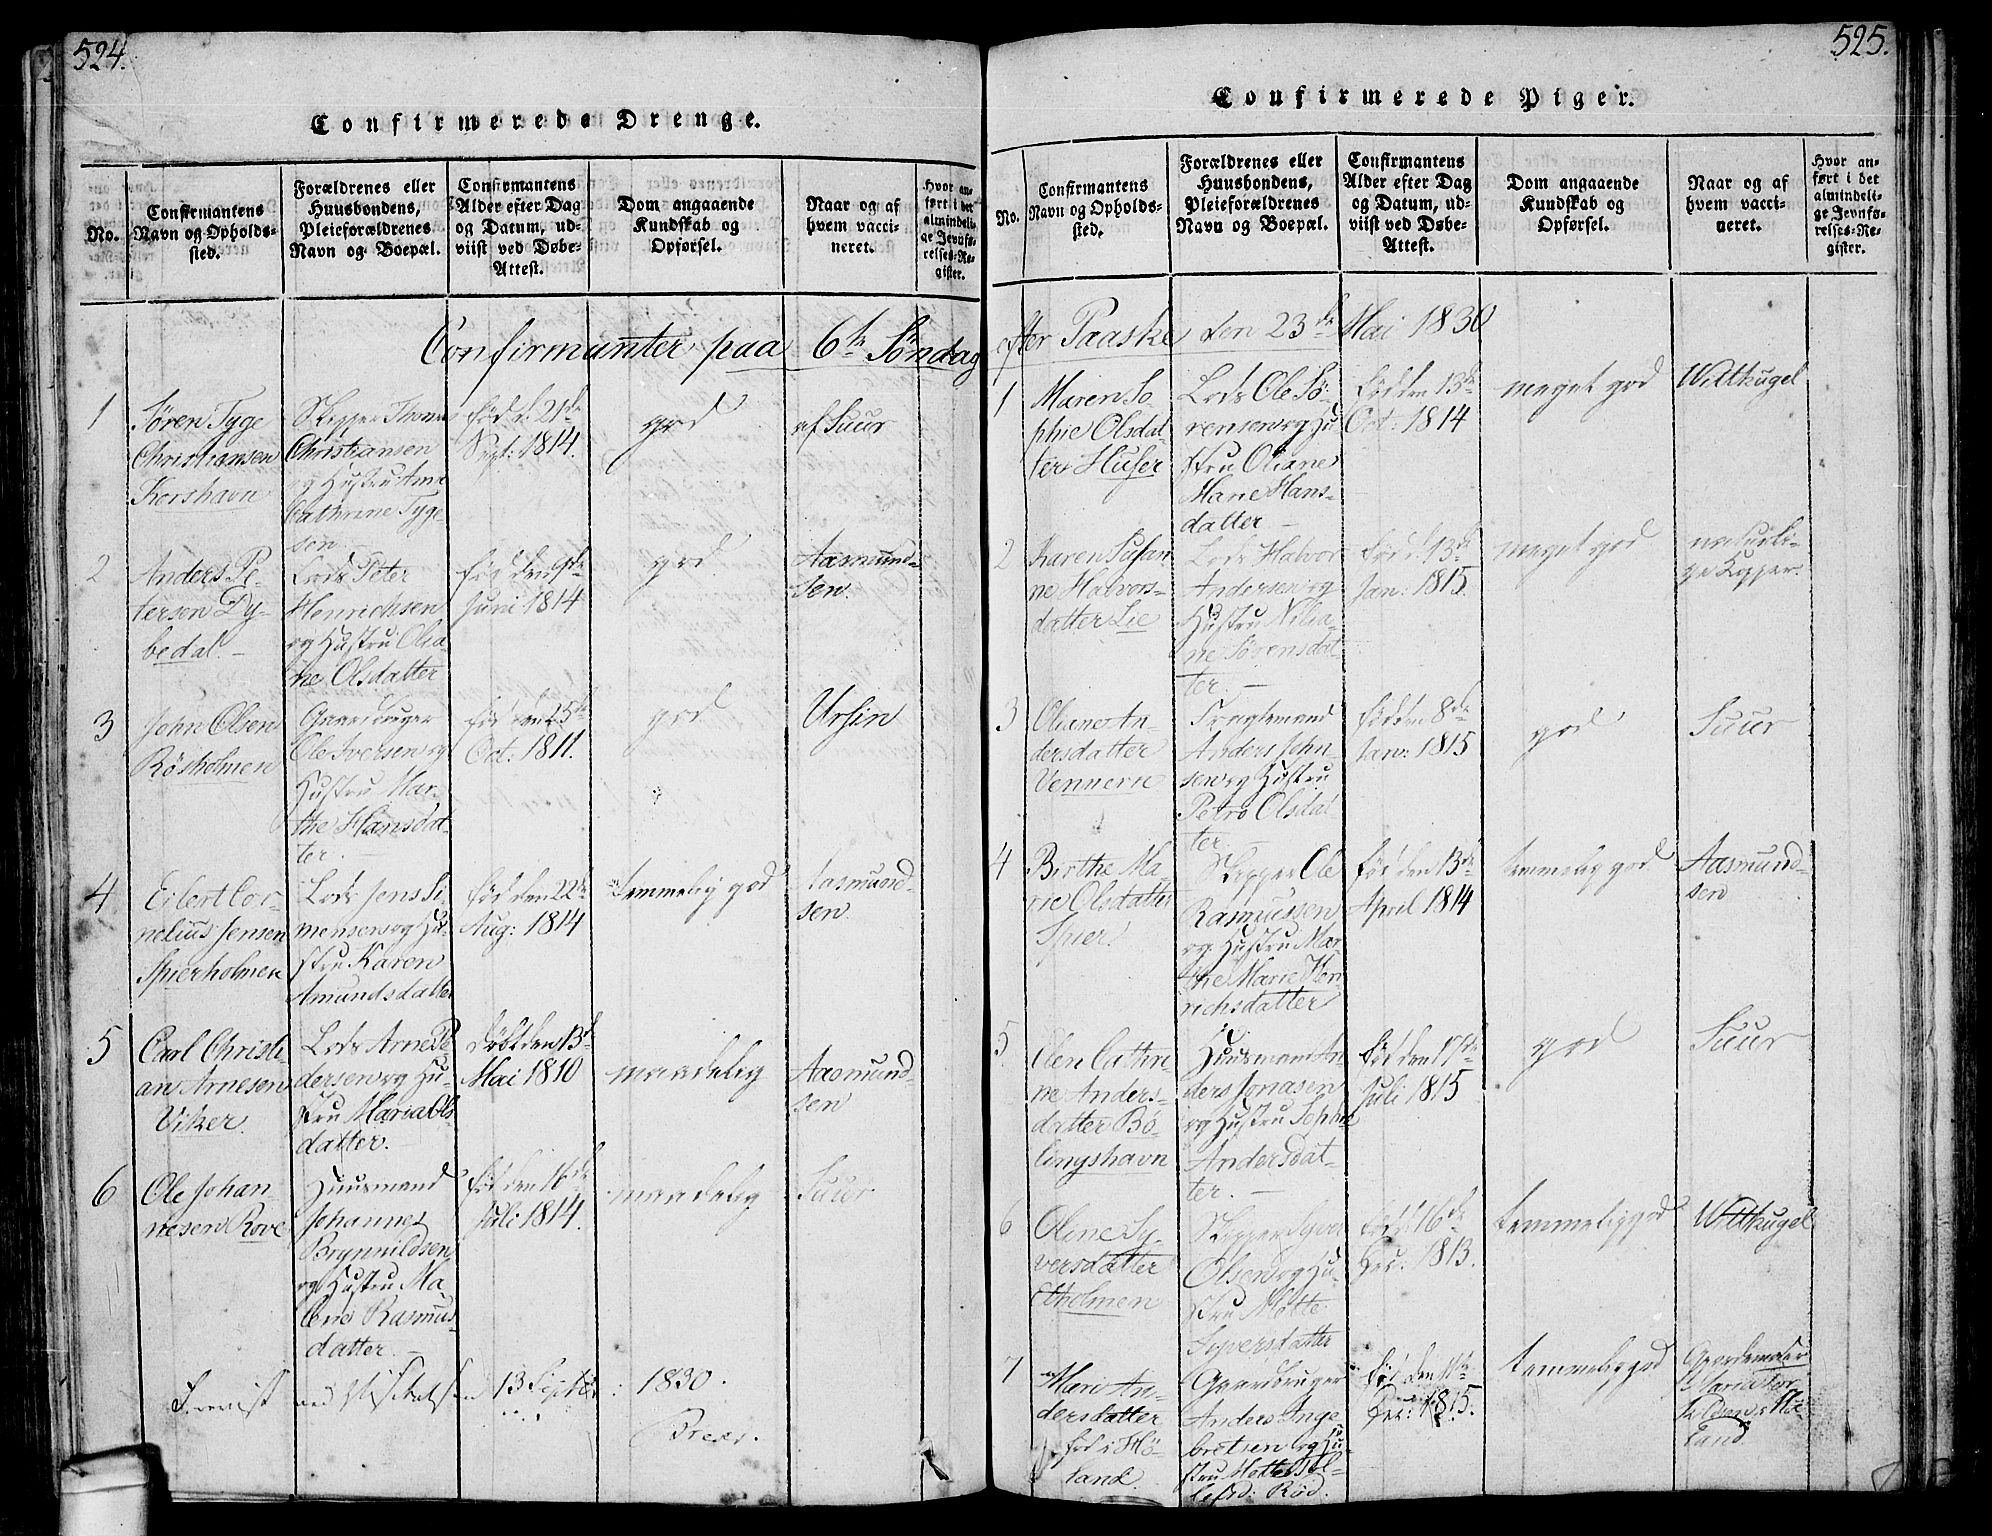 524.
Confirmerede Drenge.
No.
Confirmantens
Navn og Opholds-
sted.
Forældrenes eller
Huusbondens,
Pleieforældrenes
Navn og Boepæl.
Confirmantens
Alder efter Dag
og Datum, ud-
viist ved Døbe-
Attest.
Dom angaaende
Kundskab og
Opførsel.
Naar og af
hvem vacci-
neret.
Hvor an-
ført i det
almindeli-
ge Jevnfø-
relses-Re-
gister.
Confirmanter paa 6te Søndag
1
Søren Tyge
Christiansen
Korshavn
Skipper Thomas
Christiansen
og Hustru Anne
Cathrine Tyge
sen
fød d. 21de
Sept: 1814.
god
af Suur
2
Anders Pe-
tersen Dy-
bedal.
Lods Peter
Henrichsen
og Hustru Olia-
ne Olsdatter
fød den 9de
Juni 1814
god
Aasmund-
sen.
3
John Olsen
Røsholmen
Gaardbruger
Ole Iversen og
Hustru Mar-
the Hansdat-
ter.
fød den 25de
Oct: 1811.
god
Ursin
4
Eilert Cor-
nelius Jensen
Spierholmen
Lods Jens Si-
mensen og Hu-
stru Karen
Amundsdatter
fød den 22de
Aug: 1814
temmelig god
Aasmund-
sen
5
Carl Christi
an Arnesen
Viker.
Lods Arne Pe
dersen og Hu-
stru Maria Ols-
datter.
døbt den 13de
Mai 1810
maadelig
Aasmund-
sen
6
Ole Johan-
nesen Rove
Huusmand
Johannes
Brynnildsen
og Hustru Ma-
lene Rasmus-
datter.
fød den 16de
Juli 1814.
maadelig
Suur
ved 13 Septbr: 1830.
525.
Confirmerede Piger.
No.
Confirmantens
Navn og Opholds-
sted.
Forældrenes eller
Huusbondens,
Pleieforældrenes
Navn og Boepæl.
Confirmantens
Alder efter Dag
og Datum, ud-
viist ved Døbe-
Attest.
Dom angaaende
Kundskab og
Opførsel.
Naar og af
hvem vacci-
neret.
Hvor an-
ført i det
almindeli-
ge Jevnfø-
relses-Re-
gister.
efter Paaske den 23de Mai 1830
1
Maren So
phie Olsdat-
ter Huser
Lods Ole Sø-
rensen og Hu
stru Oliane
Marie Hans-
datter
fød den 13de
Oct: 1814
meget god
Wittkugel
2
Karen Susan
ne Halvors-
datter Lie
Lods Halvor
Andersen og
Hustru Nilia-
ne Sørensdat-
ter.
fød d. 13de
Jan: 1815.
meget god
naturli-
ge Kopper.
3
Oliane An-
dersdatter
Vennern
Anders John-
sen og Hustru
Petro Olsdat-
ter.
fød den 8de
Janv: 1815
god
Suur
4
Birthe Ma-
rie Olsdatter
Spier.
Skipper Ole
Rasmussen
og Hustru Mar-
the Marie Hen
richsdatter
fød den 13de
April 1814
temmelig god
Aasmund-
sen
5.
Elen Cathri
ne Anders-
datter Bø-
lingshavn
Huusmand An-
ders Jonasen
og Hustru Sophie
Andersdat-
ter.
fød den 17de
Juli 1815
god
Suur
6
Oline Sy-
versdatter
Etholmen
Skipper Syver
Olsen og Hu-
stru Mette
Syversdatter
fød d. 16de
Dec: 1813.
temmelig god
Wittkugel
7
Mari An-
dersdatter
fød i Hø-
land.
Gaardbruger
Anders Inge
bretsen og Hu-
stru
Rød.
fød den 11te
Dec: 1815.
temmelig god
Maria
Hø-
land